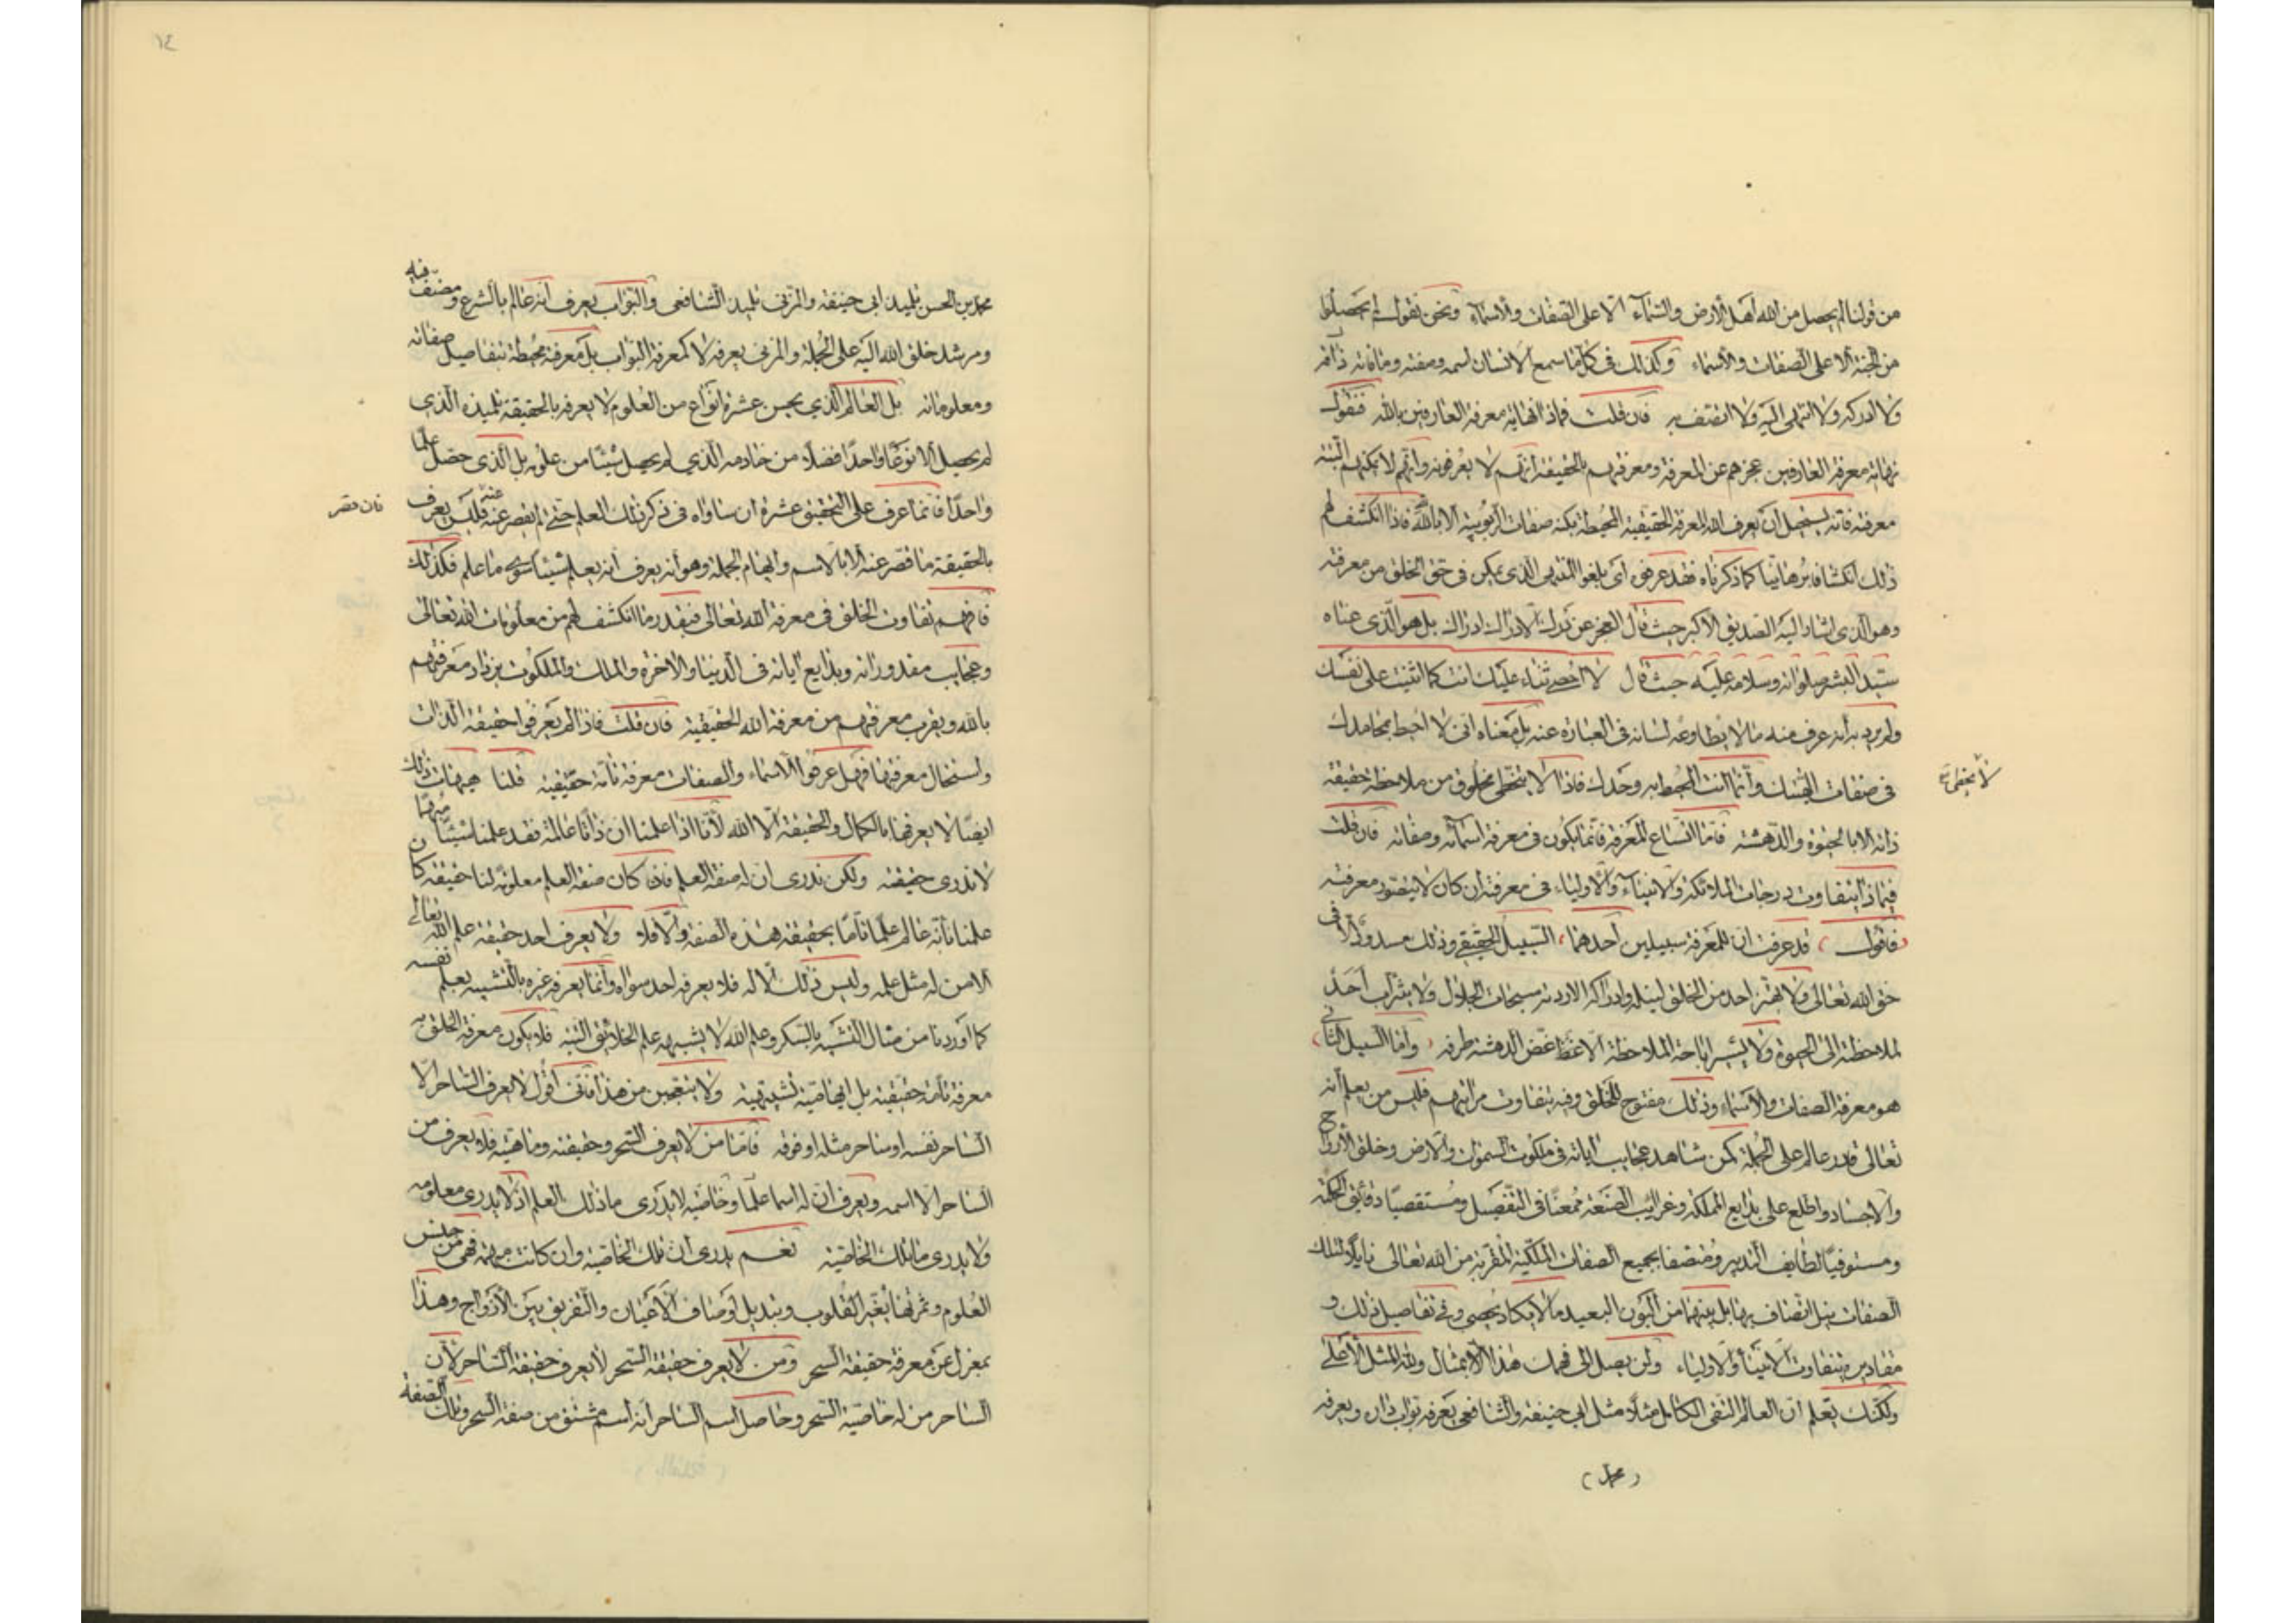 من قولنا لم يحصل من الله اهل الارض والسماء الا على الصفات والاسماء ونحن نقول لم يحصلوا
من الجنة الا على الصفات والاسماء وكذلك في كل ما سمع الانسان اسمه وصفته وما ذاقه
ولا ادركه ولا انتهى اليه ولا اتصف به فان قلت فماذا نهاية معرفة العارفين بالله فنقول
نهاية معرفة العارفين عجزهم عن المعرفة ومعرفتهم بالحقيقة انهم لا يعرفونه وانهم لا يمكنهم البتة
معرفته فانه يستحيل ان يعرف الله المعرفة الحقيقية المحيطة بكنه صفات الربوبية الا الله فاذا انكشف لهم
ذلك انكشافا برهانيا كما ذكرناه فقد عرفوه اى بلغوا المنتهى الذى يمكن فى حق الخلق من معرفته
وهو الذى اشار اليه الصديق الاكبر حيث قال العجز عن درك الادراك ادراك بل هو الذى عناه
سيد البشر صلواته وسلامه عليه حيث قال لا احصى ثناء عليك انت كما اثنيت على نفسك
ولم يرد به انه عرف منه ما لا يطاوعه لسانه فى العبارة عنه بل معناه انى لا احيط بمحامدك
فى صفات الهيتك وانما انت المحيط به وحدك فاذا لا يتخطى مخلوق من ملاحظة حقيقة
ذاته الا بالحيرة والدهشة فاما اتساع المعرفة فانما يكون فى معرفة اسمائه وصفاته فان قلت
فبماذا يتفاوت درجات الملائكة والانبياء والاولياء فى معرفته ان كان لا يتصور معرفته
فاقول قد عرفت ان للمعرفة سبيلين احدهما السبيل الحقيقى وذلك مسدود الا فى
حق الله تعالى ولا يهتز احد من الخلق لنيله وادراكه الا ردته سبحات الجلال ولا يشرأب احد
لملاحظته الى الحيرة ولا يشير اباحة الملاحظة الا غظ غض الدهشة طرفه واما السبيل الثانى
هو معرفة الصفات والاسماء وذلك مفتوح للخلق وفيه يتفاوت مراتبهم فليس من يعلم انه
تعالى قادر عالم على الجملة كمن شاهد عجايب اياته فى ملكوت السموات والارض وخلق الارواح
والاجساد واطلع على بدايع المملكة وغرايب الصنعة ممعنا فى التفصيل ومستقصيا دقائق الحكمة
ومستوفيا لطايف التدبير ومتصفا بجميع الصفات الملكية المقربة من الله تعالى نايلا لتلك
الصفات نيل اتصاف بها بل بينهما من البون البعيد ما لا يكاد يحصى وفى تفاصيل ذلك و
مقاديره يتفاوت الانبياء والاولياء ولن يصل الى فهمك هذا الا بمثال ولله المثل الاعلى
ولكنك تعلم ان العالم التقى الكامل مثلا مثل ابى حنيفة والشافعى يعرفه بواب داره ويعرفه
(محمد)
محمد بن الحسن تلميذ ابى حنيفة والمزنى تلميذ الشافعى والبواب يعرف انه عالم بالشرع ومصنف فيه
ومرشد خلق الله اليه على الجملة والمزنى يعرفه لا كمعرفة البواب بل معرفة محيطة بتفاصيل صفاته
ومعلوماته بل العالم الذى يحسن عشرة انواع من العلوم لا يعرفه بالحقيقة تلميذه الذى
لم يحصل الا نوعا واحدا فضلا من خادمه الذى لم يحصل شيئا من علومه بل الذى حصل علما
واحدا فانما عرف على التحقيق عشره ان ساواه فى ذكر ذلك العلم حتى لم يقصر عنه فليس يعرف
فان قصر عنه
بالحقيقة ما قصر عنه الا بالاسم وايهام الجملة وهو انه يعرف انه يعلم شيئا سوى ما علم فكذلك
فافهم تفاوت الخلق فى معرفة الله تعالى فبقدر ما انكشف لهم من معلومات الله تعالى
وعجايب مقدوراته وبدايع اياته فى الدنيا والاخرة والملك والملكوت يزداد معرفتهم
بالله ويقرب معرفتهم من معرفة الله الحقيقية فان قلت فاذا لم يعرفوا حقيقة الذات
واستحال معرفتها فهل عرفوا الاسماء والصفات معرفة تامة حقيقية قلنا هيهات ذلك
ايضا لا يعرفها بالكمال والحقيقة الا الله لانا اذا علمنا ان ذاتا عالمة فقد علمنا شيئا مبهما
لا ندرى حقيقته ولكن ندرى ان له صفة العلم فان كان صفة العلم معلومة لنا حقيقة كان
علمنا بانه عالم علما تاما بحقيقة هذه الصفة والا فلا ولا يعرف احد حقيقة علم الله تعالى
الا من له مثل علمه وليس ذلك الا له فلا يعرفه احد سواه وانما يعرفه غيره بالتشبيه بعلم نفسه
كما اوردنا من مثال التشبيه بالسكر وعلم الله لا يشبهه علم الخلائق البتة فلا يكون معرفة الخلق به
معرفة تامة حقيقية بل ايهامية تشبيهية ولا يتعجبن من هذا فانى اقول لا يعرف الساحر الا
الساحر نفسه او ساحر مثله او فوقه فاما من لا يعرف السحر وحقيقته وماهيته فلا يعرف من
الساحر الا اسمه ويعرف ان له اسما علما وخاصية لا يدرى ما ذلك العلم اذ لا يدرى معلومه
ولا يدرى ما تلك الخاصية نعم يدرى ان تلك الخاصية وان كانت مبهمة فهى من جنس
العلوم وثمرتها تغير القلوب وتبديل اوصاف الاعيان والتفريق بين الازواج وهذا
بمعزل عن معرفة حقيقة السحر ومن لا يعرف حقيقة السحر لا يعرف حقيقة الساحر لان
الساحر من له خاصية السحر وحاصل اسم الساحر انه اسم مشتق من صفة السحر وتلك الصفة
١٤